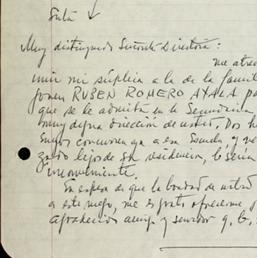 Srita
Muy distinguida Señorita Directora:
me atrevo
unir mi súplica a la de la familia
joven RUBEN ROMERO AYALA pa
que se le admita en la Secundaria
muy digna dirección de usted. Dos h
suyos concurren ya a esa Escuela, y
lejos de su residencia, le sería
En espera de que la bondad de usted
a este ruego, me es grato ofrecerme
afmo. amigo y servidor q. b.